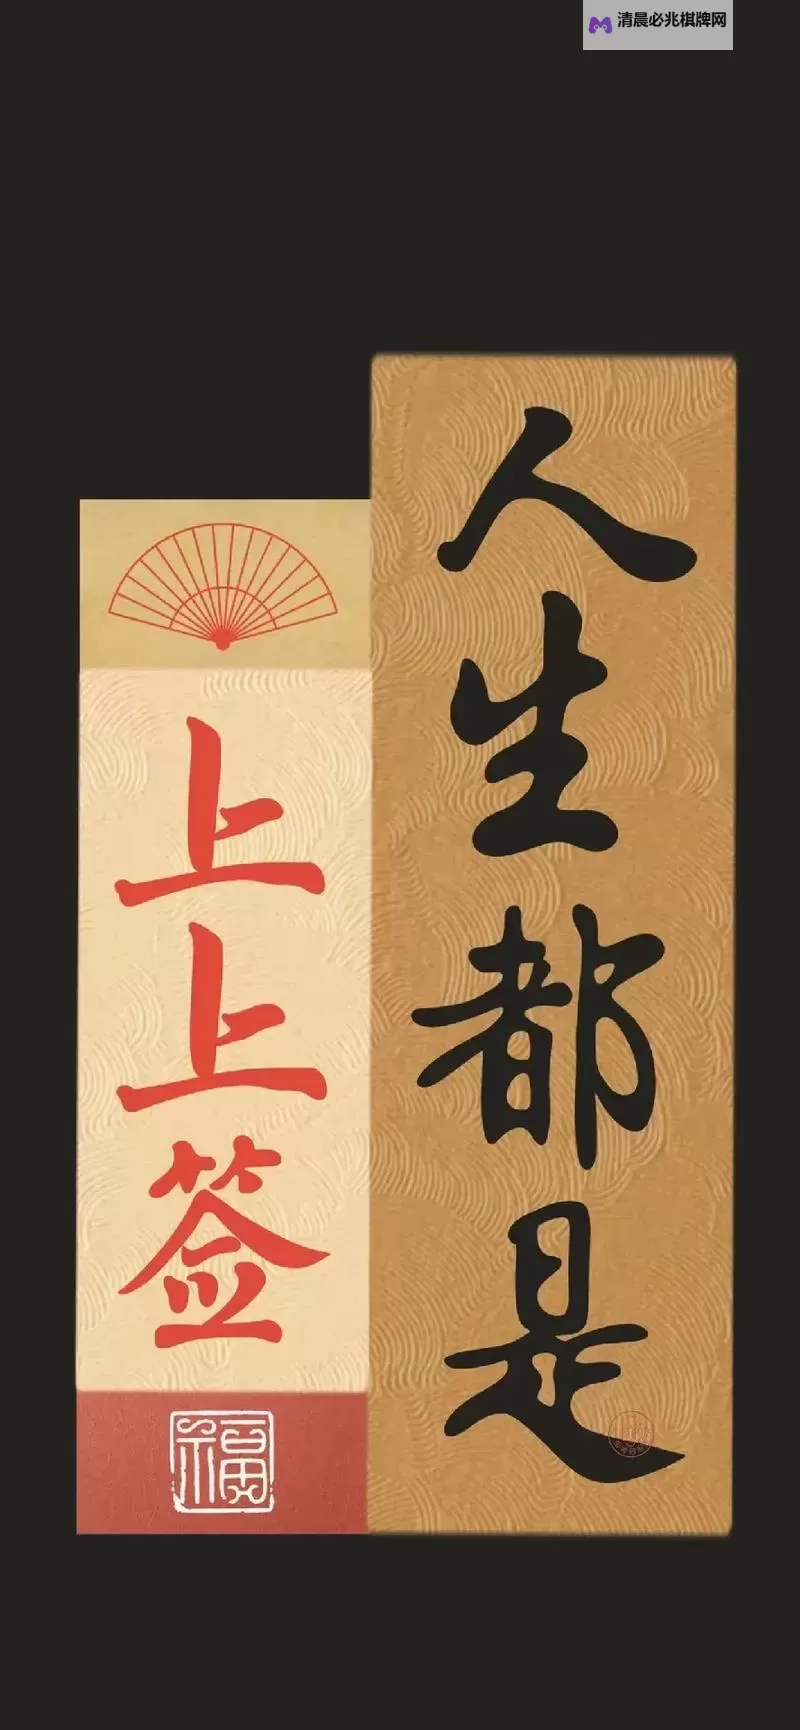 清晨必兆棋牌网
人生都是
上上签
福